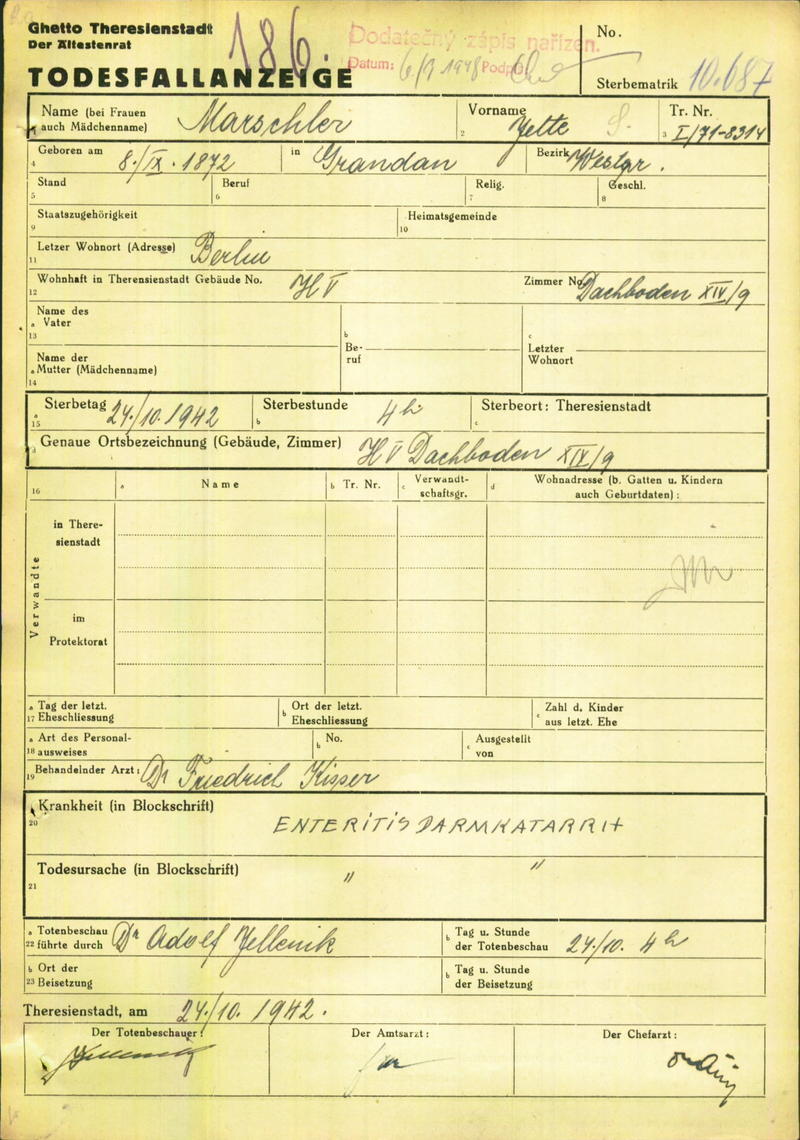 Ghetto Theresienstadt
Der Ältestenrat
186.
Dodatečný zápis nařízen.
Datum: 6/I 1948 Podpis
No.
TODESFALLANZEIGE
Sterbematrik 10.687
Name (bei Frauen auch Mädchenname) Marschler
Vorname Jette S.
2
Tr. Nr.
3 I/71-8314
4 Geboren am 8./IX. 1872 in Grandan Bezirk Westpr.
Stand
5
Beruf
6
Relig.
7
Geschl.
8
Staatszugehörigkeit
9
Heimatsgemeinde
10
Letzer Wohnort (Adresse) Berlin
11
Wohnhaft in Theresienstadt Gebäude No. H V Zimmer No. Dachboden XIV/9
12
Name des
a Vater
13
b
Beruf
c
Letzter
Wohnort
Name der
a Mutter (Mädchenname)
14
a Sterbetag 24./10. 1942
15
b Sterbestunde 4 h
c Sterbeort: Theresienstadt
d Genaue Ortsbezeichnung (Gebäude, Zimmer) H V Dachboden XIX/9
16
a Name
b Tr. Nr.
c Verwandtschaftsgr.
d Wohnadresse (b. Gatten u. Kindern
auch Geburtdaten):
Verwandte
in Theresienstadt
im
Protektorat
a Tag der letzt.
17 Eheschliessung
b Ort der letzt.
Eheschliessung
c Zahl d. Kinder
aus letzt. Ehe
a Art des Personal-
18 ausweises
b No.
c Ausgestellt
von
19 Behandelnder Arzt: Dr Friedrich Kisser
Krankheit (in Blockschrift)
20
ENTERITIS DARMKATARRH
Todesursache (in Blockschrift) " "
21
a Totenbeschau
22 führte durch Dr Adolf Jellenik
b Tag u. Stunde
der Totenbeschau 24./10. 4 h
b Ort der
23 Beisetzung
b Tag u. Stunde
der Beisetzung
Theresienstadt, am 24./10. 1942.
Der Totenbeschauer:
Der Amtsarzt:
Der Chefarzt: